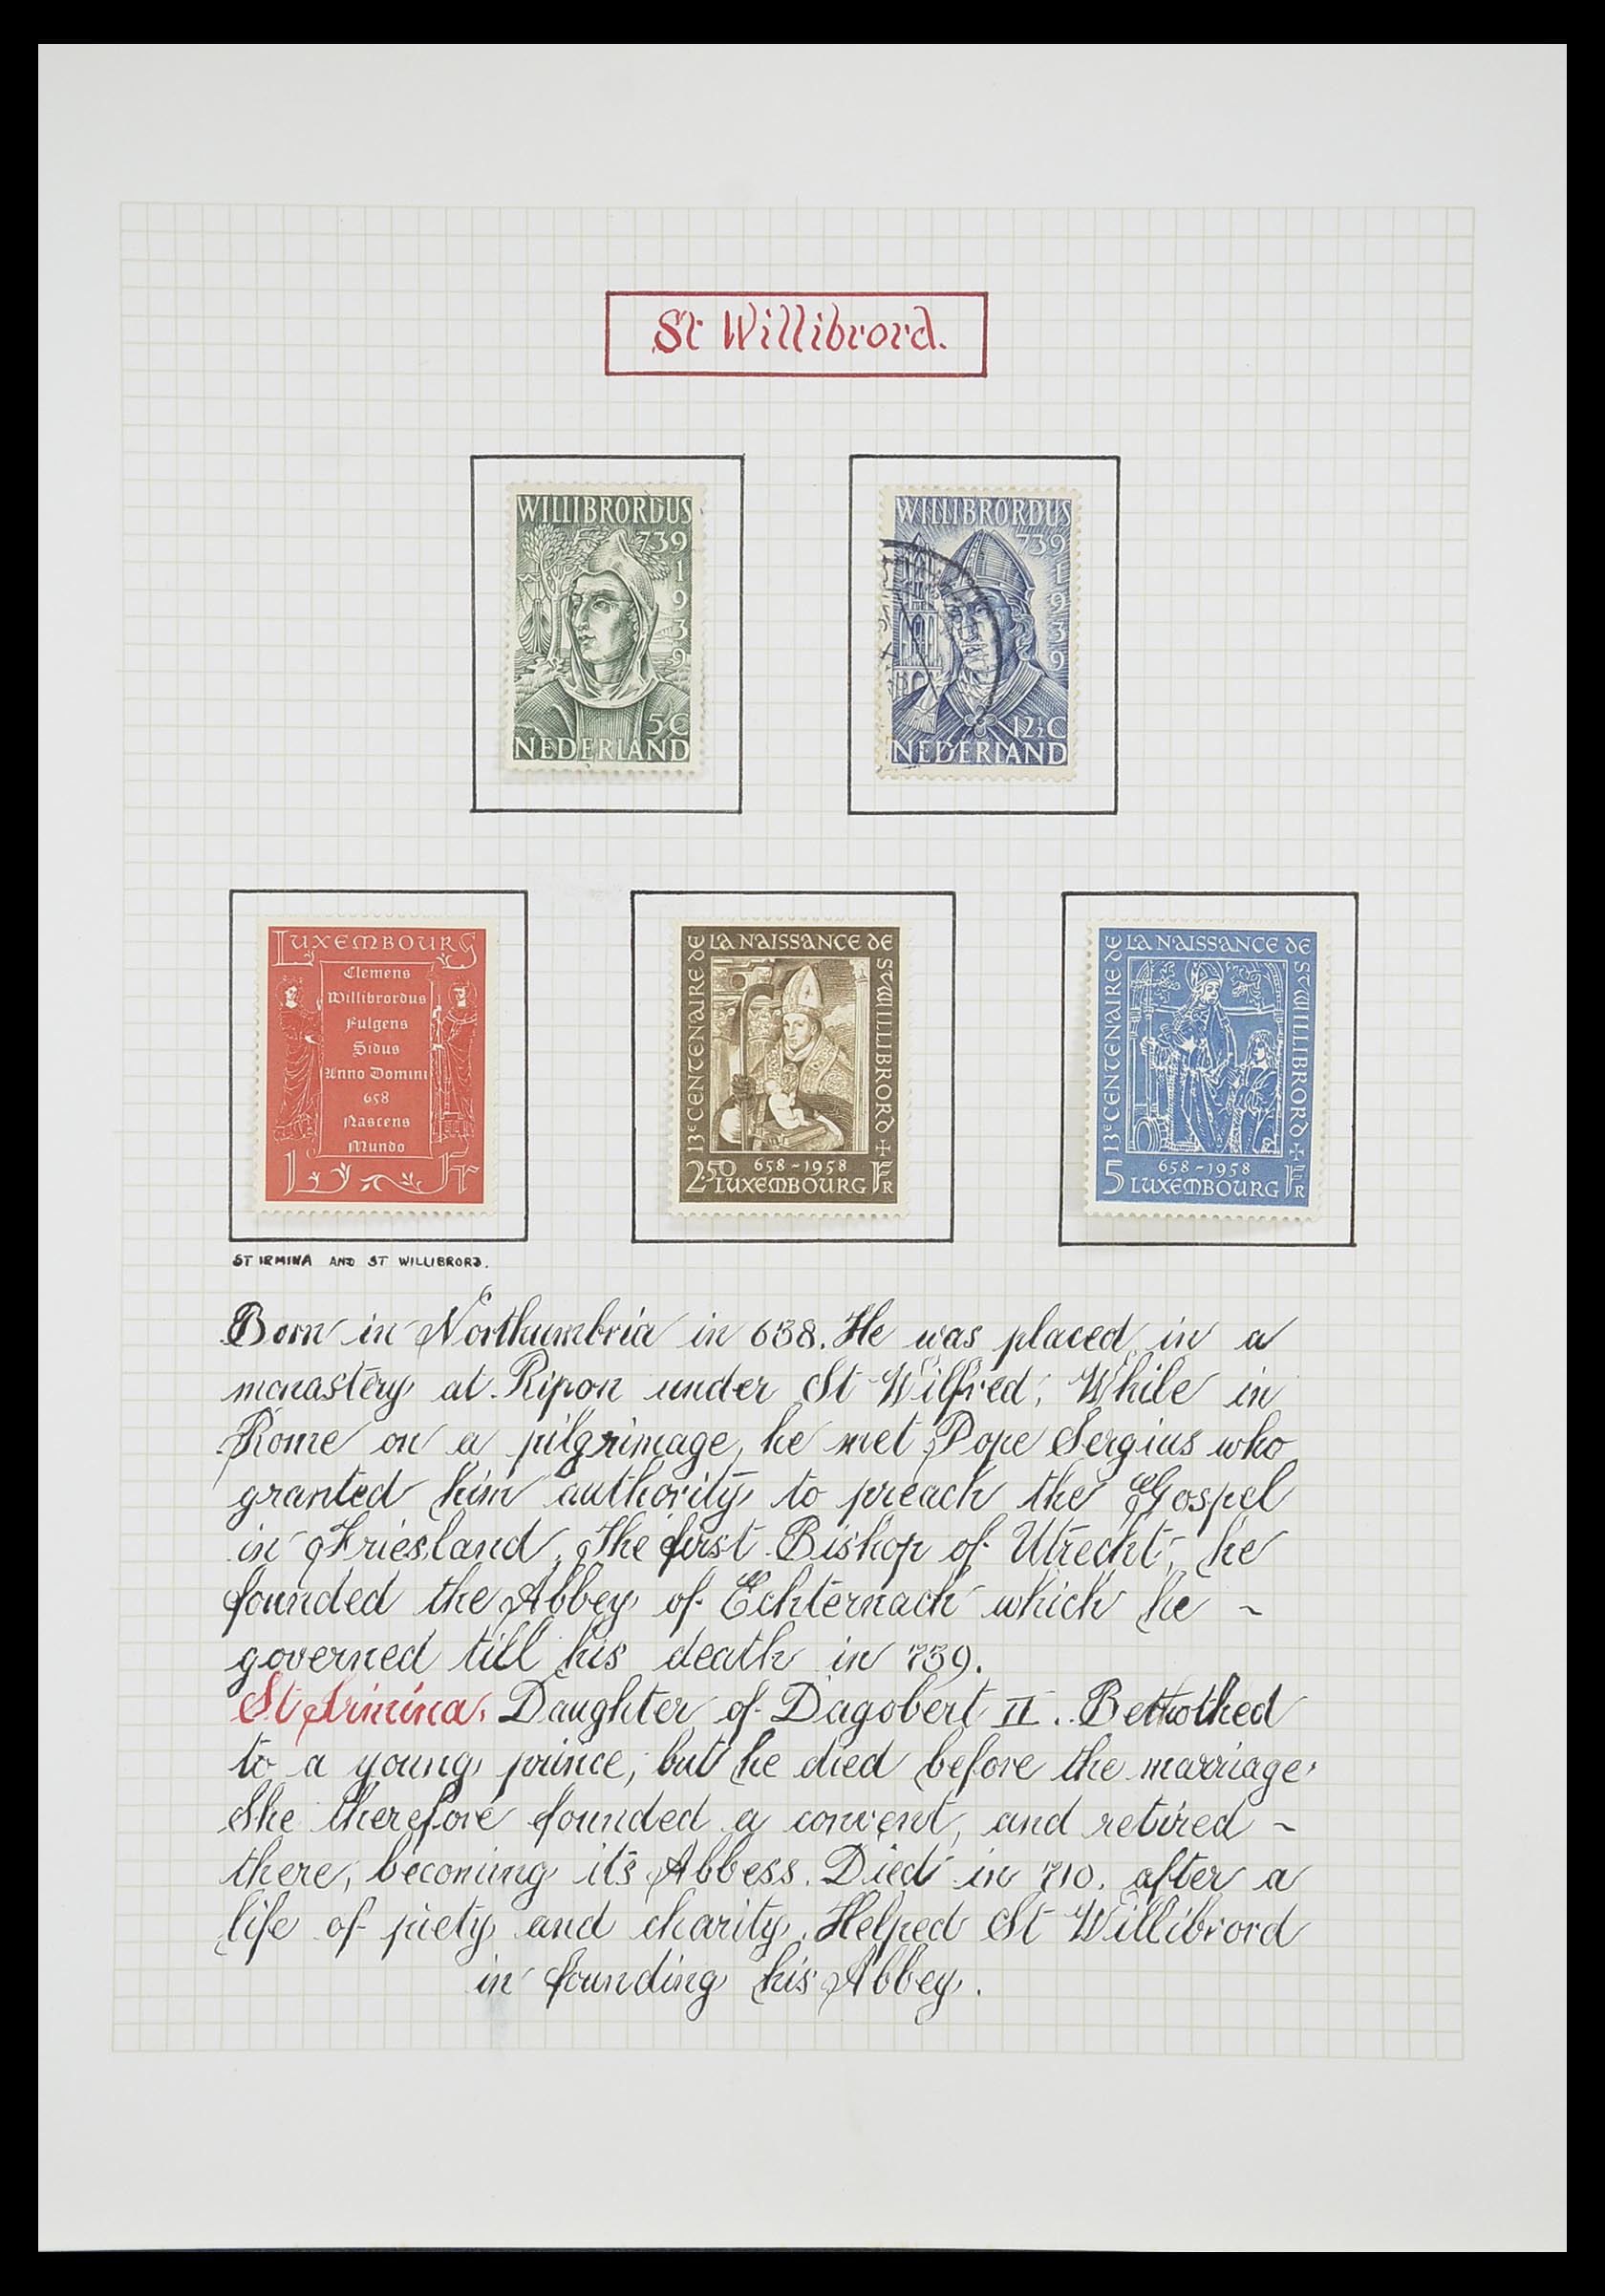 St Willibrord.
WILLIBRORDUS
739
1939
5C
NEDERLAND
WILLIBRORDUS
739
1939
12½C
NEDERLAND
LUXEMBOURG
Clemens
Willibrordus
Fulgens
Sidus
Anno Domini
658
Nascens
Mundo
1 Fr
13e CENTENAIRE DE LA NAISSANCE DE ST WILLIBRORD +
658-1958
2.50 LUXEMBOURG FR
13e CENTENAIRE DE LA NAISSANCE DE ST WILLIBRORD +
658-1958
5 LUXEMBOURG FR
ST IRMINA AND ST WILLIBRORD.
Born in Northumbria in 638. He was placed in a
monastery at Ripon under St Wilfred; While in
Rome on a pilgrimage, he met Pope Sergius who
granted him authority to preach the Gospel
in Friesland. The first Bishop of Utrecht, he
founded the Abbey of Echternach which he ~
governed till his death in 739.
St Irmina. Daughter of Dagobert II. Betrothed
to a young prince, but he died before the marriage,
She therefore founded a convent, and retired ~
there, becoming its Abbess. Died in 710. after a
life of piety and charity. Helped St Willibrord
in founding his Abbey.